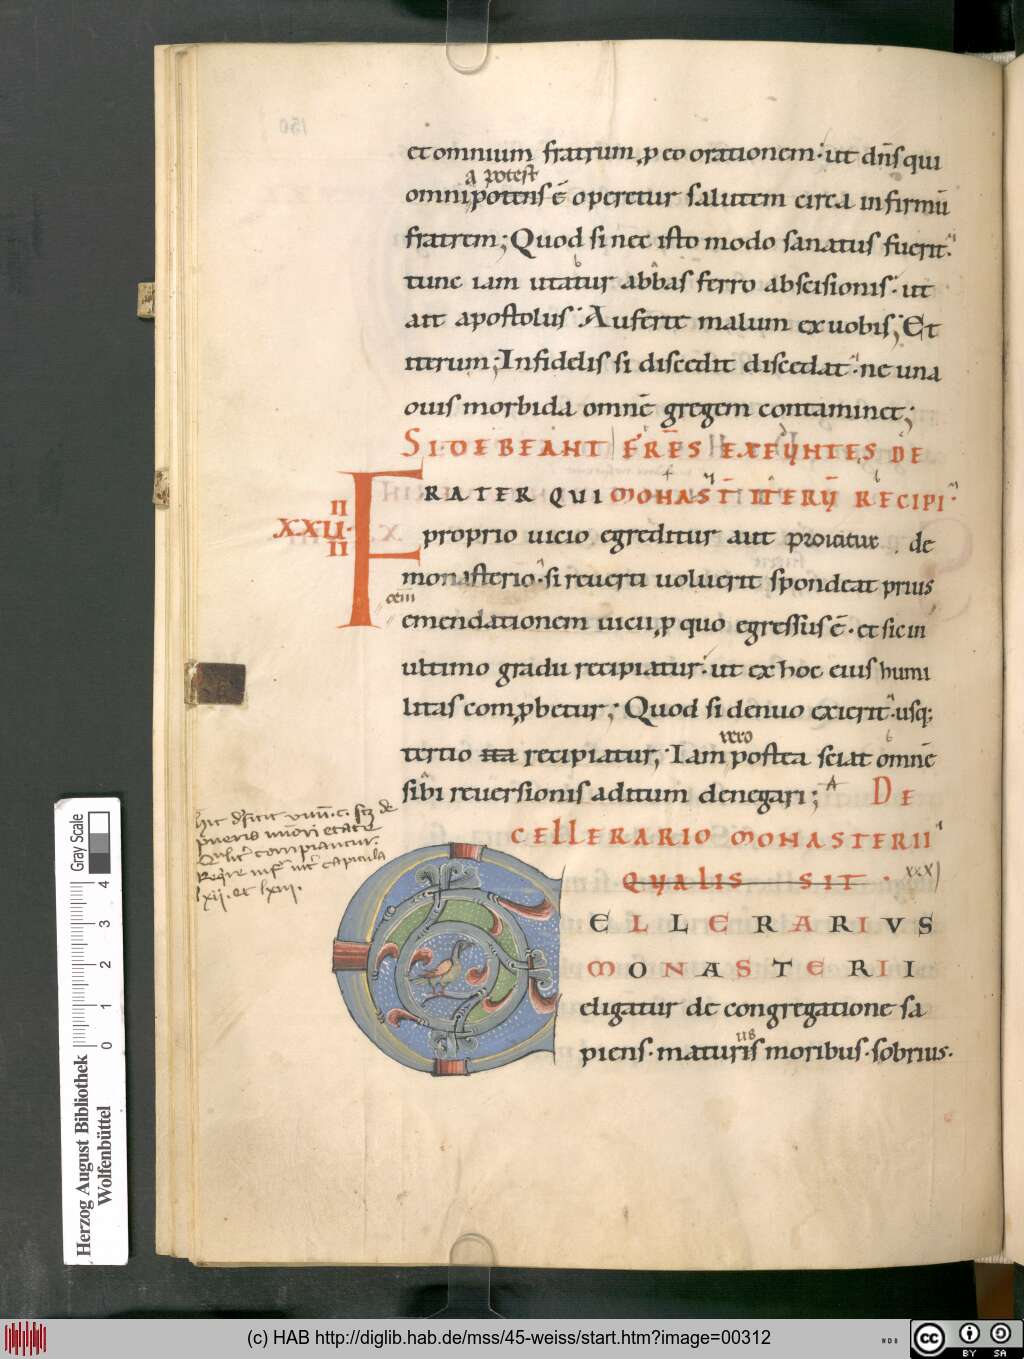 et omnium fratrum, ꝑ eo orationem· ut dn̄s qui
a potest
omnipotens ē operetur salutem circa infirmū
fratrem; Quod si nec isto modo sanatus fuerit·
tunc iam utatur abbas ferro abscisionis· ut
ait apostolus· Auferte malum ex uobis; Et
iterum; Infidelis si discedit discedat· ne una
ouis morbida omnē gregem contaminet;
SI DEBEANT FRĒS EXEUNTES DE
FRATER QUI MONAST̄ ITERŪ RECIPI·
XXVIIII
proprio uicio egreditur aut proicitur de
monasterio· si reuerti uoluerit spondeat prius
emendationem uicii, ꝑ quo egressus ē· et sic in
ultimo gradu recipiatur· ut ex hoc eius humi
litas comꝓbetur; Quod si denuo exierit· usq;
vero
tertio ita recipiatur; Iam postea sciat omnē
sibi reuersionis aditum denegari; DE
CELLERARIO MONASTERII
QUALIS SIT · xxxj
CELLERARIVS
MONASTERII
eligatur de congregatione sa
us
piens· maturis moribus· sobrius·
lxii. et lxiii.
150
Gray Scale
0 1 2 3 4
Herzog August Bibliothek
Wolfenbüttel
(c) HAB http://diglib.hab.de/mss/45-weiss/start.htm?image=00312
cc BY SA